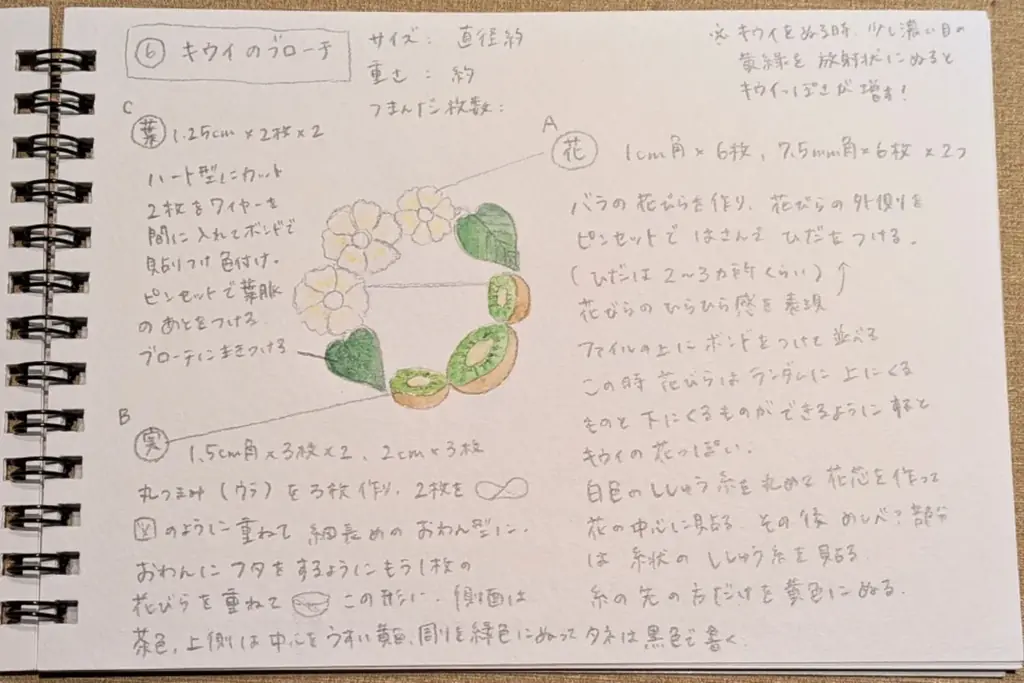 ⑥ キウイのブローチ
サイズ: 直径約
重さ: 約
つまんだ枚数:
※キウイをぬる時、少し濃い目の
黄緑を放射状にぬると
キウイっぽさが増す!
C
葉 1.25cm×2枚×2
ハート型にカット
2枚をワイヤーを
間に入れてボンドで
貼りつけ色付け。
ピンセットで葉脈
のあとをつける
ブローチにまきつける
A
花 1cm角×6枚、7.5mm角×6枚×2つ
バラの花びらを作り、花びらの外側を
ピンセットではさんで ひだをつける。
(ひだは2~3カ所くらい)↑
花びらのひらひら感を表現
ファイルの上にボンドをつけて並べる
この時 花びらはランダムに上にくる
ものと下にくるものができるように
キウイの花っぽい。
白色のししゅう糸を丸めて花芯を作って
花の中心に貼る。その後めしべ?部分
は糸状のししゅう糸を貼る
糸の先の方だけを黄色にぬる。
B
実 1.5cm角×3枚×2、2cm×3枚
丸つまみ(ウラ)を3枚作り、2枚を
のように重ねて細長めのおわん型に。
おわんにフタをするようにもう1枚の
花びらを重ねて この形に。側面は
茶色、上側は中心をうすい黄色、周りを緑色にぬってタネは黒色で書く。